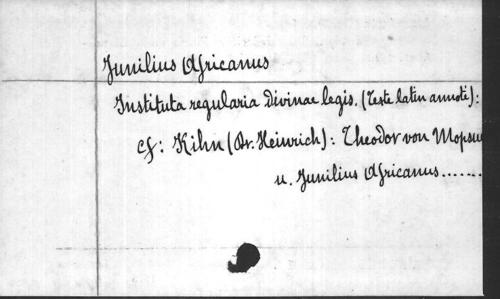 Junilius Africanus
Instituta regularia divinae legis. (Texte latin annoté):
cf: Kihn (Dr. Heinrich): Theodor von Mopsu
u. Junilius Africanus.......